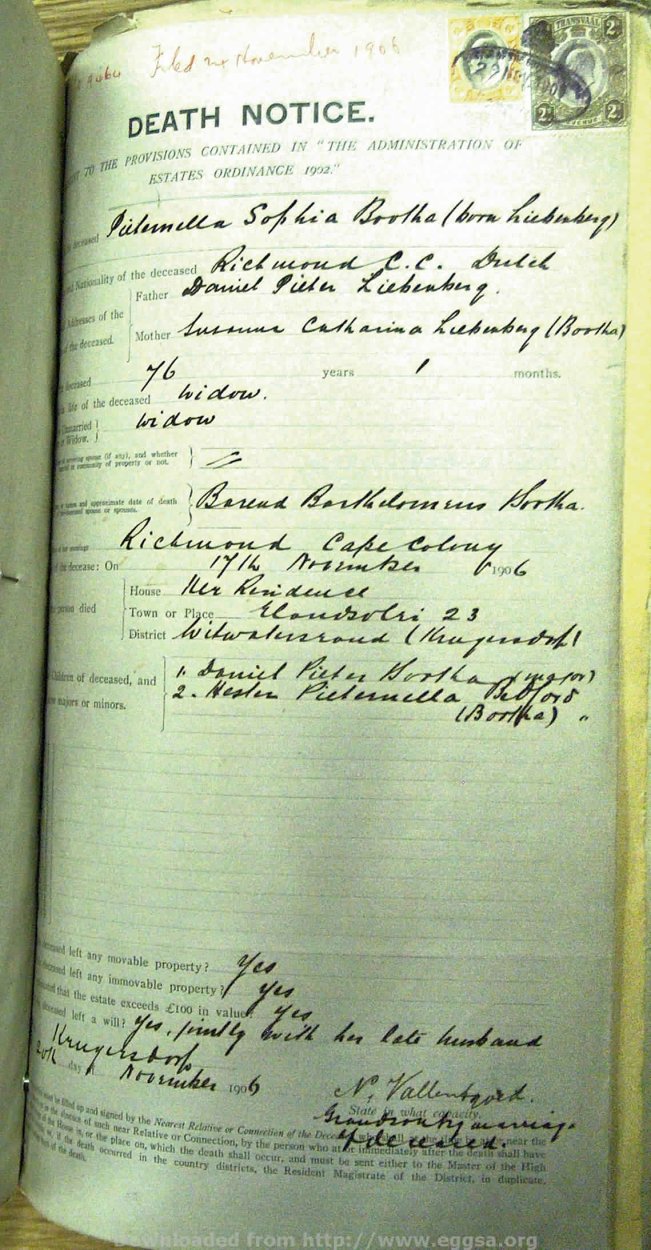 9464 Filed 24 November 1906
TRANSVAAL
2D 2D
DEATH NOTICE.
TO THE PROVISIONS CONTAINED IN "THE ADMINISTRATION OF
ESTATES ORDINANCE 1902."
deceased Pieternella Sophia Bootha (born Liebenberg)
Nationality of the deceased Richmond C.C. Dutch
Addresses of the Father Daniel Pieter Liebenberg.
the deceased. Mother Susanna Catharina Liebenberg (Bootha)
deceased 76 years 1 months.
life of the deceased Widow.
Unmarried
or Widow. Widow
surviving spouse (if any), and whether
in community of property or not.
names and approximate date of death
spouse or spouses. Barend Bartholomeus Bootha.
Richmond Cape Colony
the decease: On 17th November 1906
House Her Residence
person died Town or Place 23
District Witwatersrand (Krugersdorp)
Children of deceased, and 1. Daniel Pieter Bootha (major)
majors or minors. 2. Hester Pieternella
(Bootha) "
deceased left any movable property? Yes
deceased left any immovable property? Yes
that the estate exceeds £100 in value? Yes
deceased left a will? Yes, jointly with her late husband
Krugersdorp
20th day of November 1906
N. Vallentgoed.
State in what capacity.
Grandson by marriage
of deceased.
must be filled up and signed by the Nearest Relative or Connection of the Deceased who shall be at the time near the
in the absence of such near Relative or Connection, by the person who at or immediately after the death shall have
of the House in, or the place on, which the death shall occur, and must be sent either to the Master of the High
or, if the death occurred in the country districts, the Resident Magistrate of the District, in duplicate,
of the death.
Downloaded from http://www.eggsa.org